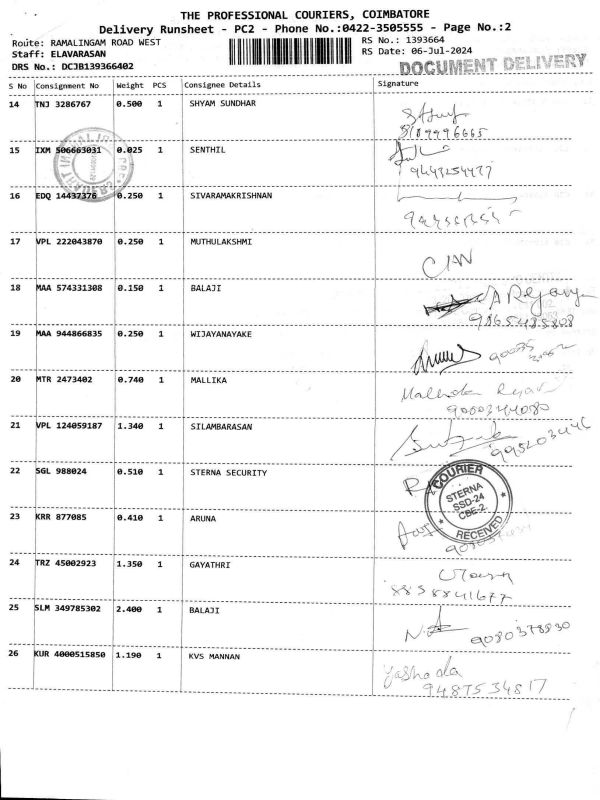 THE PROFESSIONAL COURIERS, COIMBATORE
Delivery Runsheet - PC2 - Phone No.:0422-3505555 - Page No.:2
Route: RAMALINGAM ROAD WEST RS No.: 1393664
Staff: ELAVARASAN RS Date: 06-Jul-2024
DRS No.: DCJB139366402 DOCUMENT DELIVERY
S No Consignment No Weight PCS Consignee Details Signature
14 TNJ 3286767 0.500 1 SHYAM SUNDHAR
15 IXM 506663031 0.025 1 SENTHIL
16 EDQ 14437376 0.250 1 SIVARAMAKRISHNAN
17 VPL 222043870 0.250 1 MUTHULAKSHMI
18 MAA 574331308 0.150 1 BALAJI
9865485808
19 MAA 944866835 0.250 1 WIJAYANAYAKE
20 MTR 2473402 0.740 1 MALLIKA
9000344080
21 VPL 124059187 1.340 1 SILAMBARASAN
22 SGL 988024 0.510 1 STERNA SECURITY
COURIER
STERNA
SSD-24
CBE-2
RECEIVED
23 KRR 877085 0.410 1 ARUNA
24 TRZ 45002923 1.350 1 GAYATHRI
8838841677
25 SLM 349785302 2.400 1 BALAJI
9080378830
26 KUR 4000515850 1.190 1 KVS MANNAN
Yashoda
9487534817